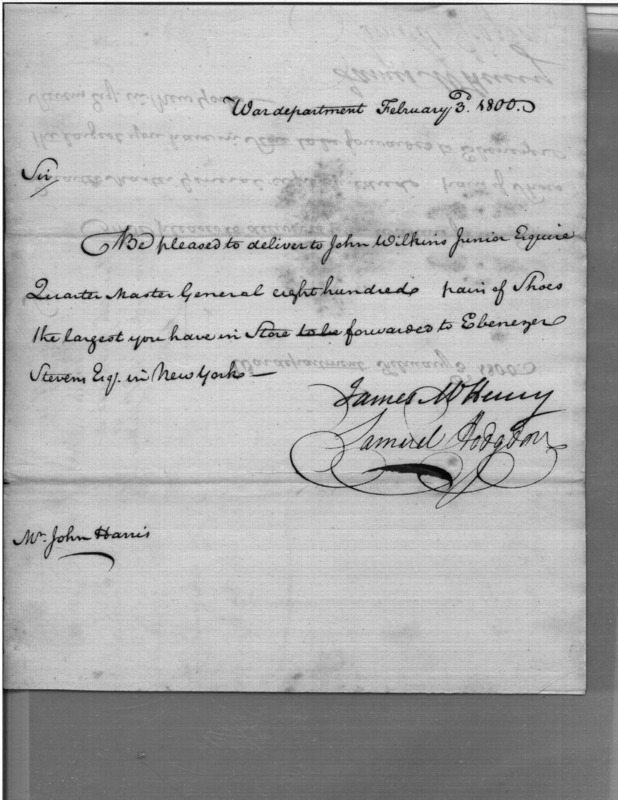 War department February 3d. 1800.
Sir,
Be pleased to deliver to John Wilkins Junior Esquire
Quarter Master General eight hundred pair of Shoes
the largest you have in Store to be forwarded to Ebenezer
Stevens Esq. in New York —
James McHenry
Samuel Hodgdon
Mr. John Harris